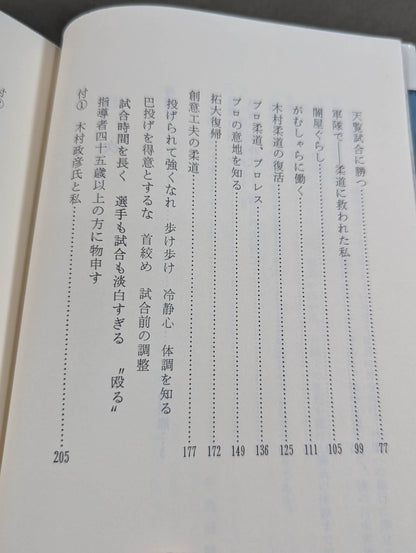 天覧試合に勝つ……77
軍隊で――柔道に救われた私……99
闇屋ぐらし……105
がむしゃらに働く……111
木村柔道の復活……125
プロ柔道、プロレス……136
プロの意地を知る……149
拓大復帰……172
創意工夫の柔道……177
投げられて強くなれ　歩け歩け　冷静心　体調を知る
巴投げを得意とするな　首絞め　試合前の調整
試合時間を長く　選手も試合も淡白すぎる　〝殴る〟
指導者四十五歳以上の方に物申す
付① 木村政彦氏と私……205